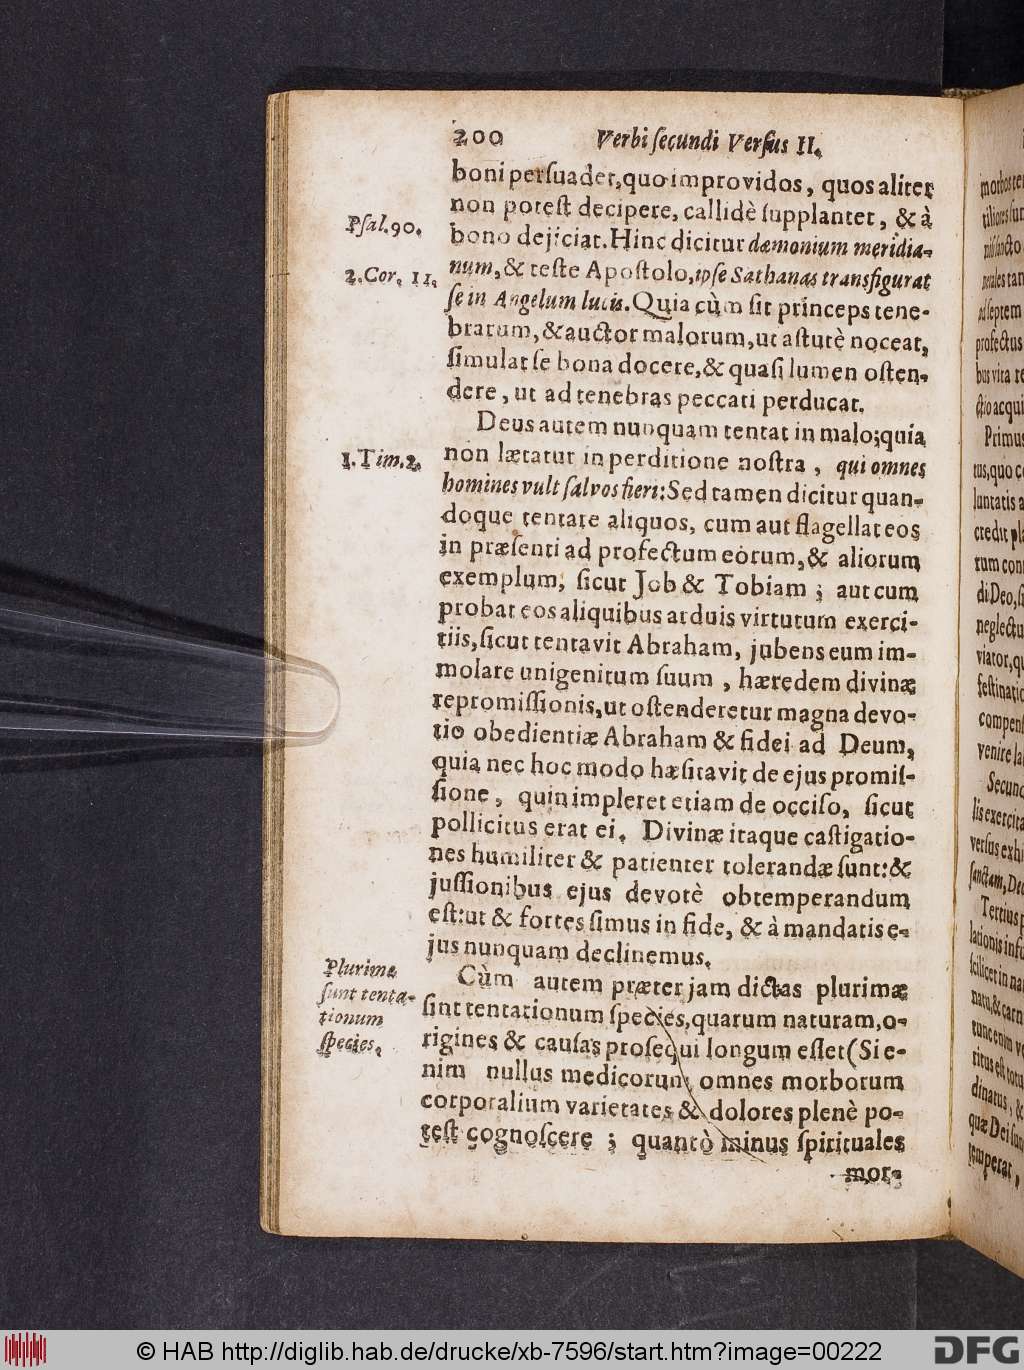 200 Verbi ſecundi Verſus II.
boni perſuadet, quo improvidos, quos aliter
non poteſt decipere, callidè ſupplantet, & à
Pſal. 90.
bono dejiciat. Hinc dicitur dæmonium meridia-
2. Cor. 11.
num, & teſte Apoſtolo, ipſe Sathanas transfigurat
ſe in Angelum lucis. Quia cùm ſit princeps tene-
brarum, & auctor malorum, ut aſtutè noceat,
ſimulat ſe bona docere, & quaſi lumen oſten-
dere, ut ad tenebras peccati perducat.
Deus autem nunquam tentat in malo; quia
1. Tim. 2.
non lætatur in perditione noſtra, qui omnes
homines vult ſalvos fieri: Sed tamen dicitur quan-
doque tentare aliquos, cum aut flagellat eos
in præſenti ad profectum eorum, & aliorum
exemplum, ſicut Job & Tobiam; aut cum
probat eos aliquibus arduis virtutum exerci-
tiis, ſicut tentavit Abraham, jubens eum im-
molare unigenitum ſuum, hæredem divinæ
repromiſſionis, ut oſtenderetur magna devo-
tio obedientiæ Abraham & fidei ad Deum,
quia nec hoc modo hæſitavit de ejus promiſ-
ſione, quin impleret etiam de occiſo, ſicut
pollicitus erat ei. Divinæ itaque caſtigatio-
nes humiliter & patienter tolerandæ ſunt: &
juſſionibus ejus devotè obtemperandum
eſt: ut & fortes ſimus in fide, & à mandatis e-
jus nunquam declinemus.
Plurimæ
ſunt tenta-
tionum
ſpecies.
Cùm autem præter jam dictas plurimæ
ſint tentationum ſpecies, quarum naturam, o-
rigines & cauſas proſequi longum eſſet (Si e-
nim nullus medicorum omnes morborum
corporalium varietates & dolores plenè po-
teſt cognoſcere; quantò minus ſpirituales
mor-
morbos
nales
ad ſeptem
profectus
bus vita
Primus
tus, quo
luntatis
credit
di Deo,
neglectu
viator,
compen
venire
Tertius
ſcilicet in
quæ Dei
temperat,
© HAB http://diglib.hab.de/drucke/xb-7596/start.htm?image=00222
DFG